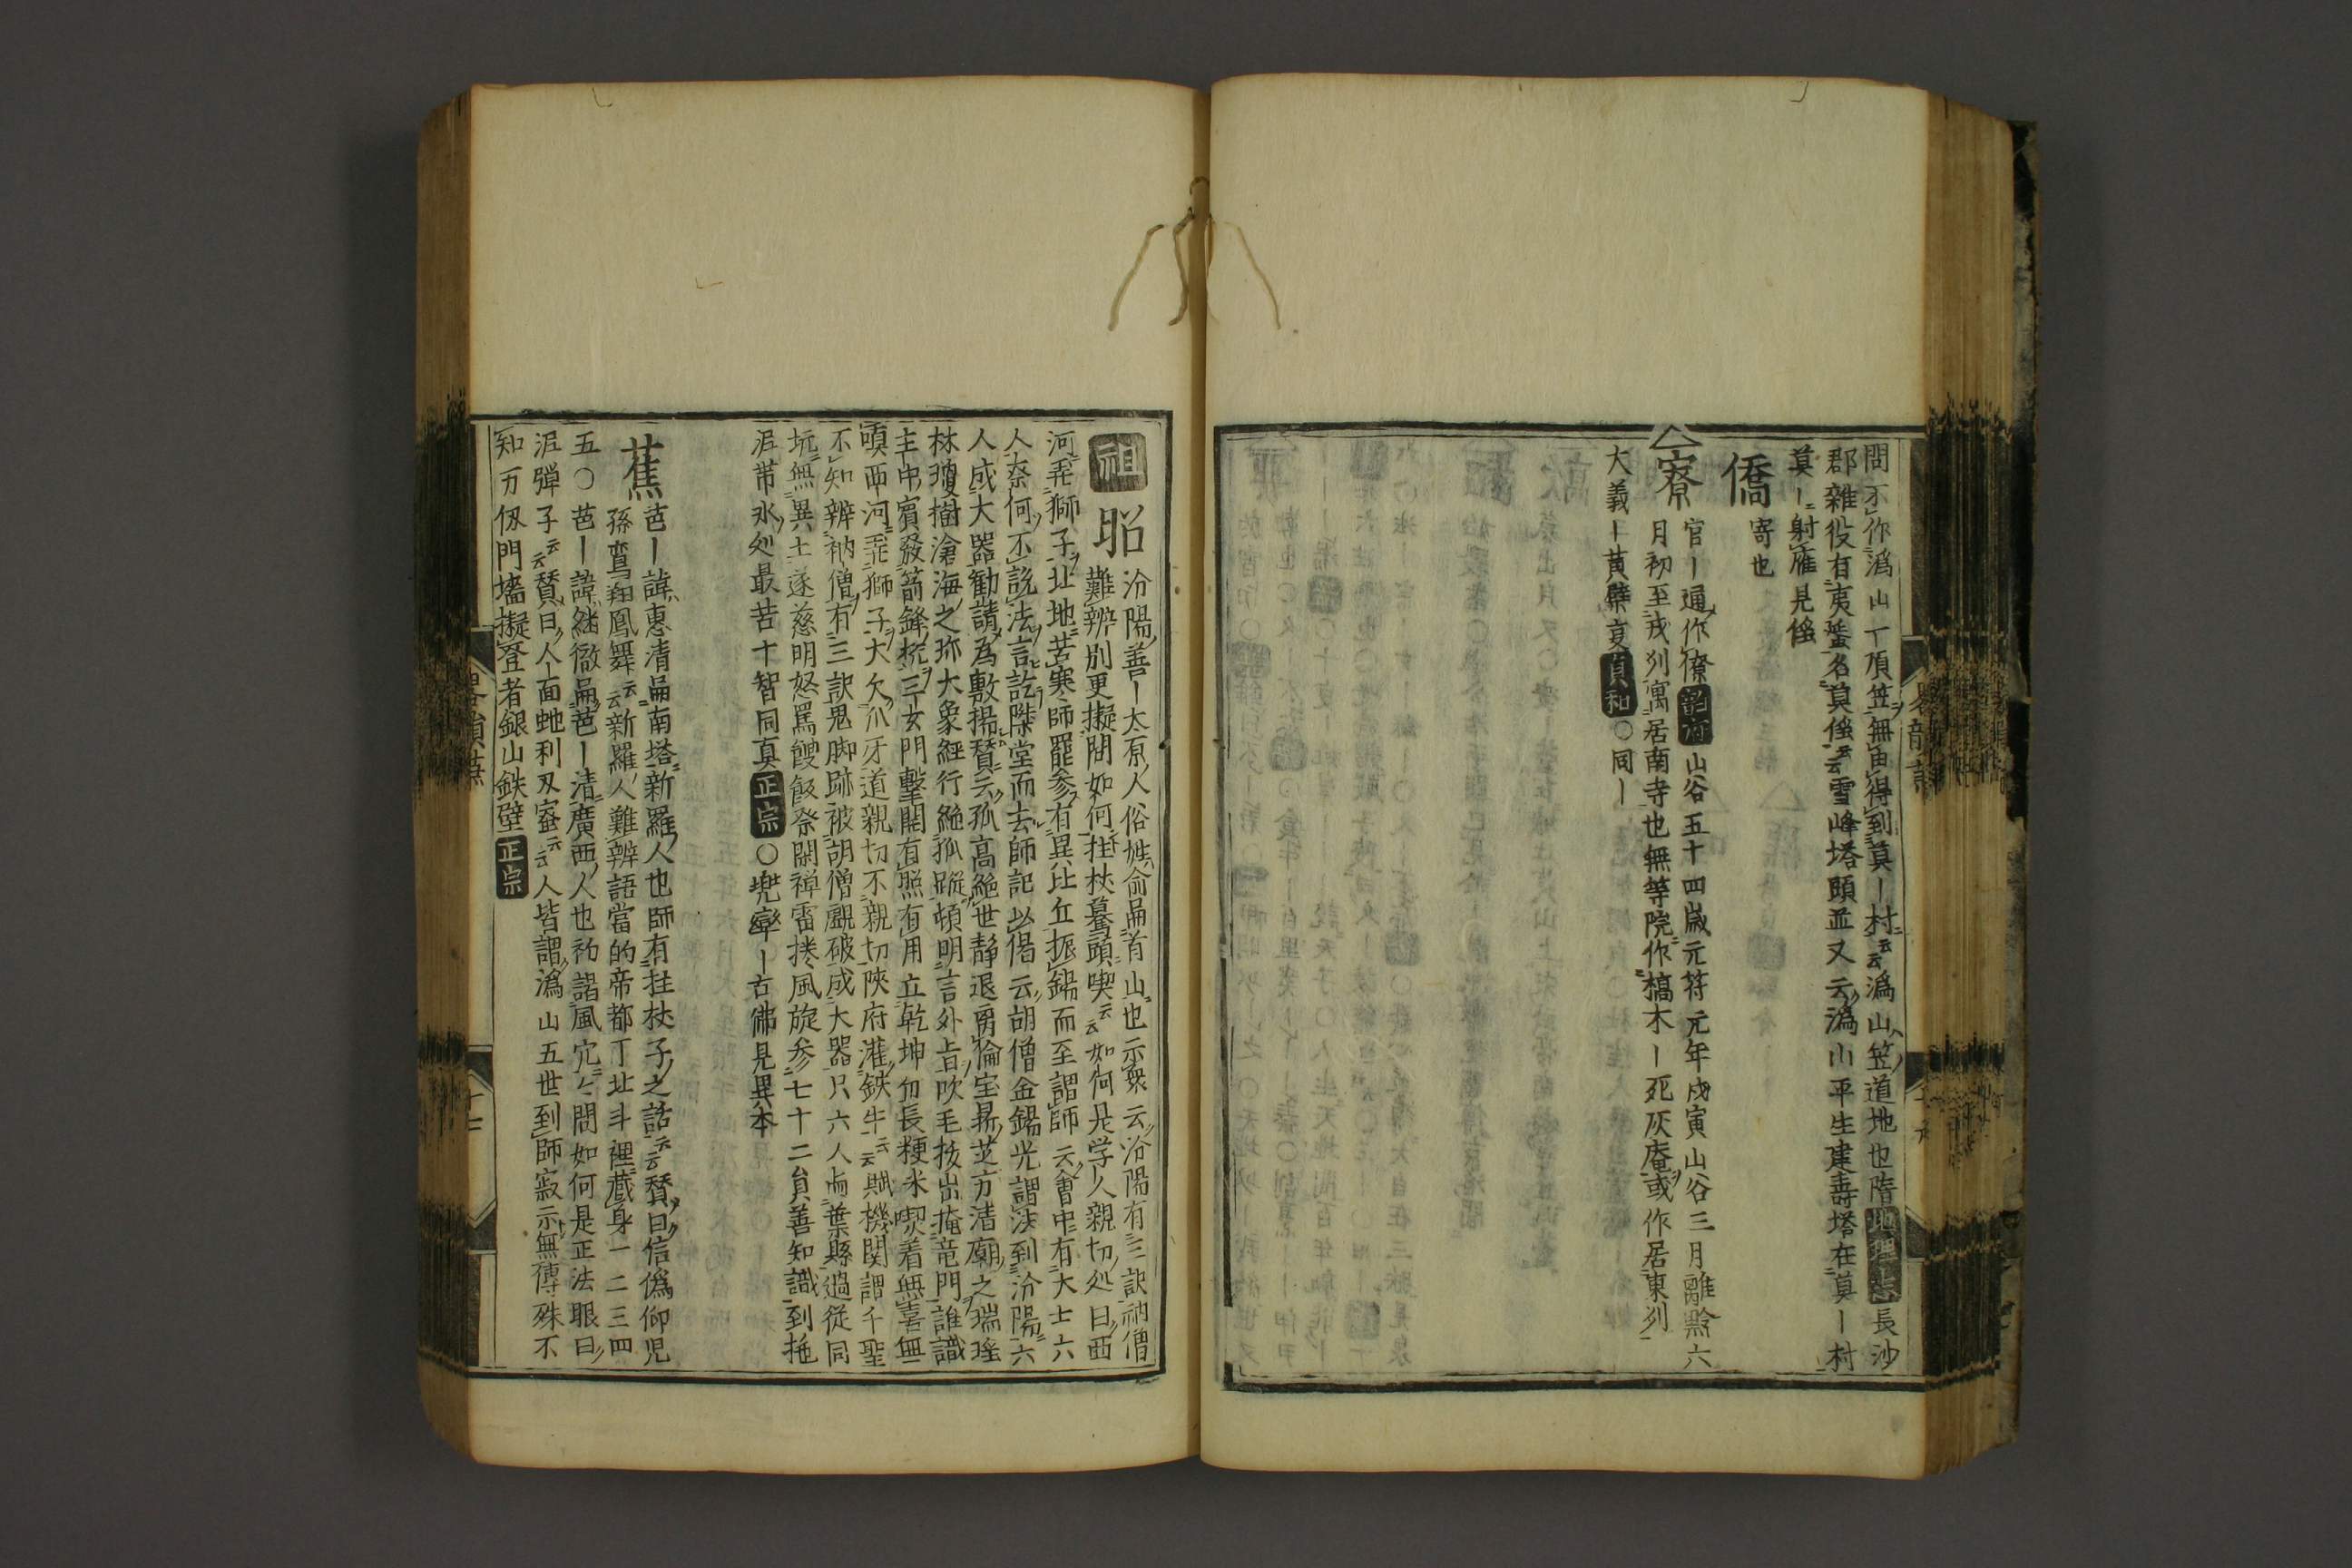 問不作潙山一頂笠無由得到莫丨村云云潙山笠道地也隋地理志長沙
郡雜役有夷蜑名莫徭云云雪峰塔頭並又云潙山平生建壽塔在莫丨村
莫丨射雁見徭
僑
寄也
寮
官丨通作僚韵府山谷五十四歳元符元年戊寅山谷三月離黔六
月初至戎州寓居南寺也無等院作槁木丨死灰庵或作居東列
大義丨黄檗
貞和〇同丨
祖
昭
汾陽善丨太原人俗姓俞扁首山也示衆云汾陽有三訣衲僧
難辨別更擬問如何拄杖驀頭喫云云如何是学人親切処曰西
河弄獅子北地苦寒師罷参有異比丘振錫而至謂師云會中有大士六
人奈何不説法言訖陞堂而去師記以偈云胡僧金錫光謂法到汾陽六
人成大器勧請為敷揚賛云孤高絶世静退勇倫宝昴芝方清廟之瑞瑤
林瓊樹滄海之珎大象経行絶狐蹤頓明言外旨吹毛抜出掩竜門誰識
主中賓發箭鋒三玄門撃開有照有用立乾坤句長粳米喫着無喜無
嗔西河弄獅子大欠爪牙道親切不親切陝府灌鉄牛云云賦機関謂千聖
不知辨衲僧有三訣鬼脚跡被胡僧覷破成大器只六人向葉縣過従同
坑無異土遂慈明怒罵餿飯祭閑禅雷捲風旋参七十二員善知識到拖
泥帯水処最苦十智同真正宗〇兜率丨古佛見異本
蕉
芭丨諱惠清扁南塔新羅人也師有拄杖子之話云云賛曰信偽仰児
孫鸞翔鳳舞云云新羅人難辨語當的帝都丁北斗裡蔵身一二三四
五〇芭丨諱継徹扁芭丨清廣西人也初謁風穴々問如何是正法眼曰
泥弾子云云賛曰人丨面虵利刄蜜云云人皆謂潙山五世到師寂示無傳殊不
知万仭門墻擬登者銀山鉄壁正宗
畧韻蕭
十七